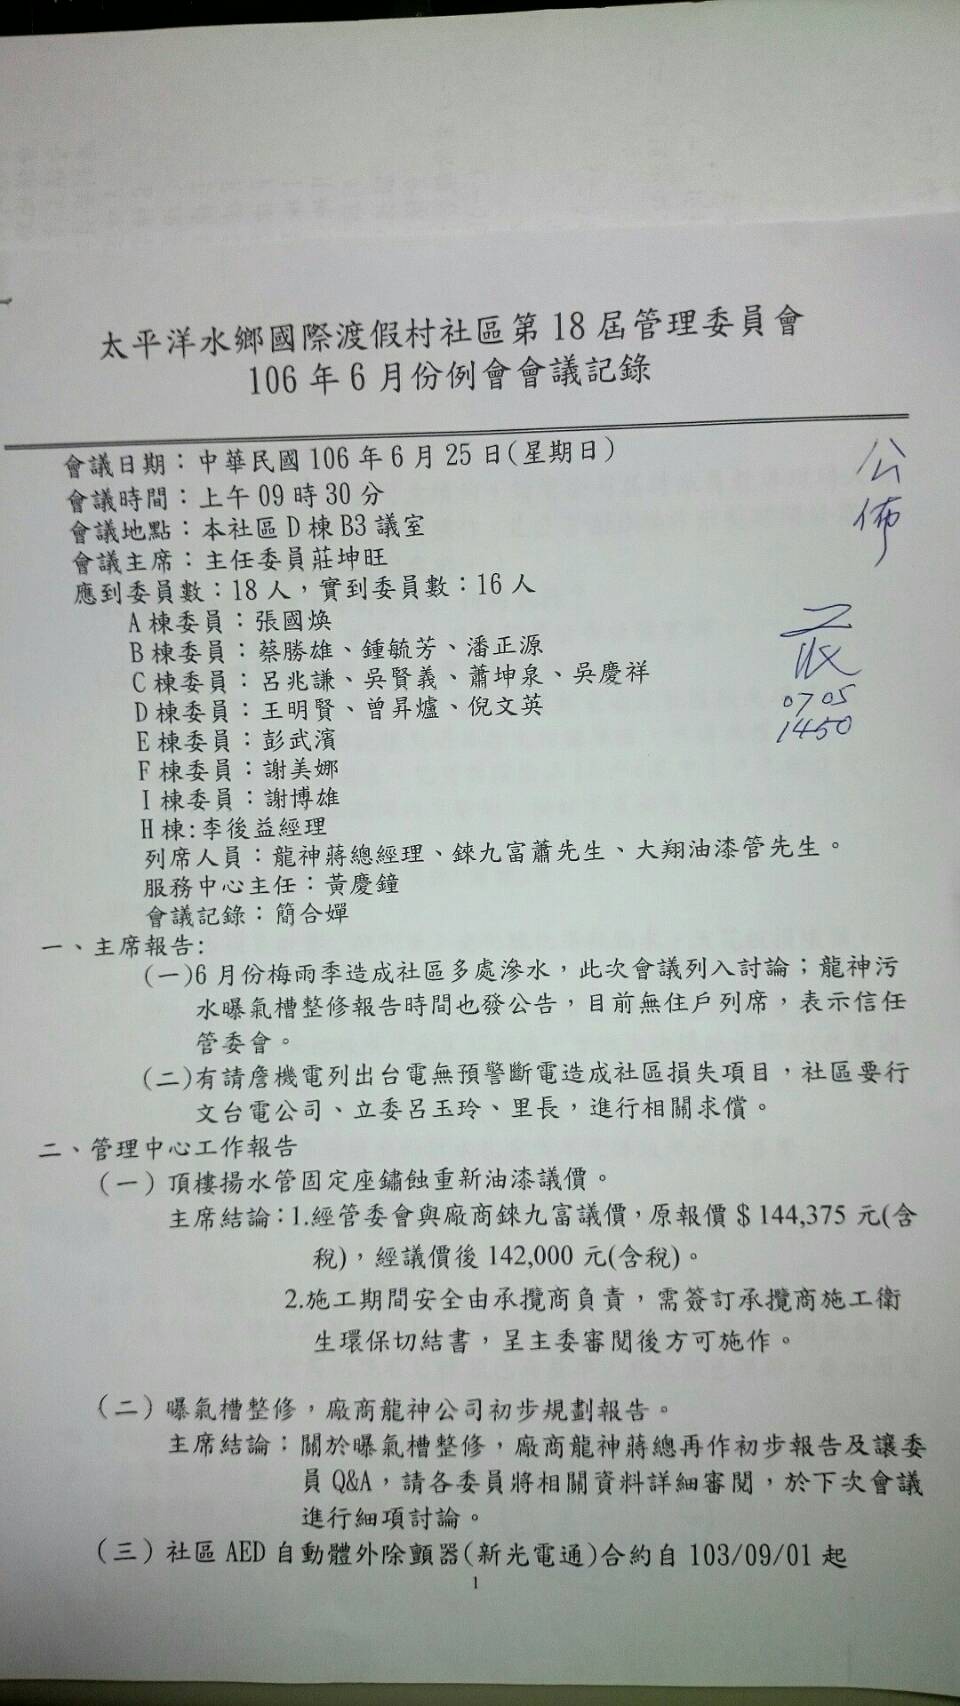 太平洋水鄉國際渡假村社區第18屆管理委員會
106年6月份例會會議記錄
會議日期：中華民國106年6月25日(星期日)
會議時間：上午09時30分
會議地點：本社區D棟B3議室
會議主席：主任委員莊坤旺
應到委員數：18人，實到委員數：16人
A棟委員：張國煥
B棟委員：蔡勝雄、鍾毓芳、潘正源
C棟委員：呂兆謙、吳賢義、蕭坤泉、吳慶祥
D棟委員：王明賢、曾昇爐、倪文英
E棟委員：彭武濱
F棟委員：謝美娜
I棟委員：謝博雄
H棟:李後益經理
列席人員：龍神蔣總經理、錸九富蕭先生、大翔油漆管先生。
服務中心主任：黃慶鐘
會議記錄：簡合嬋
公佈
0705
1450
一、主席報告:
(一)6月份梅雨季造成社區多處滲水，此次會議列入討論；龍神污
水曝氣槽整修報告時間也發公告，目前無住戶列席，表示信任
管委會。
(二)有請詹機電列出台電無預警斷電造成社區損失項目，社區要行
文台電公司、立委呂玉玲、里長，進行相關求償。
二、管理中心工作報告
(一)頂樓揚水管固定座鏽蝕重新油漆議價。
主席結論：1.經管委會與廠商錸九富議價，原報價$144,375元(含
稅)，經議價後142,000元(含稅)。
2.施工期間安全由承攬商負責，需簽訂承攬商施工衛
生環保切結書，呈主委審閱後方可施作。
(二)曝氣槽整修，廠商龍神公司初步規劃報告。
主席結論：關於曝氣槽整修，廠商龍神蔣總再作初步報告及讓委
員Q&A，請各委員將相關資料詳細審閱，於下次會議
進行細項討論。
(三)社區AED自動體外除顫器(新光電通)合約自103/09/01起
1